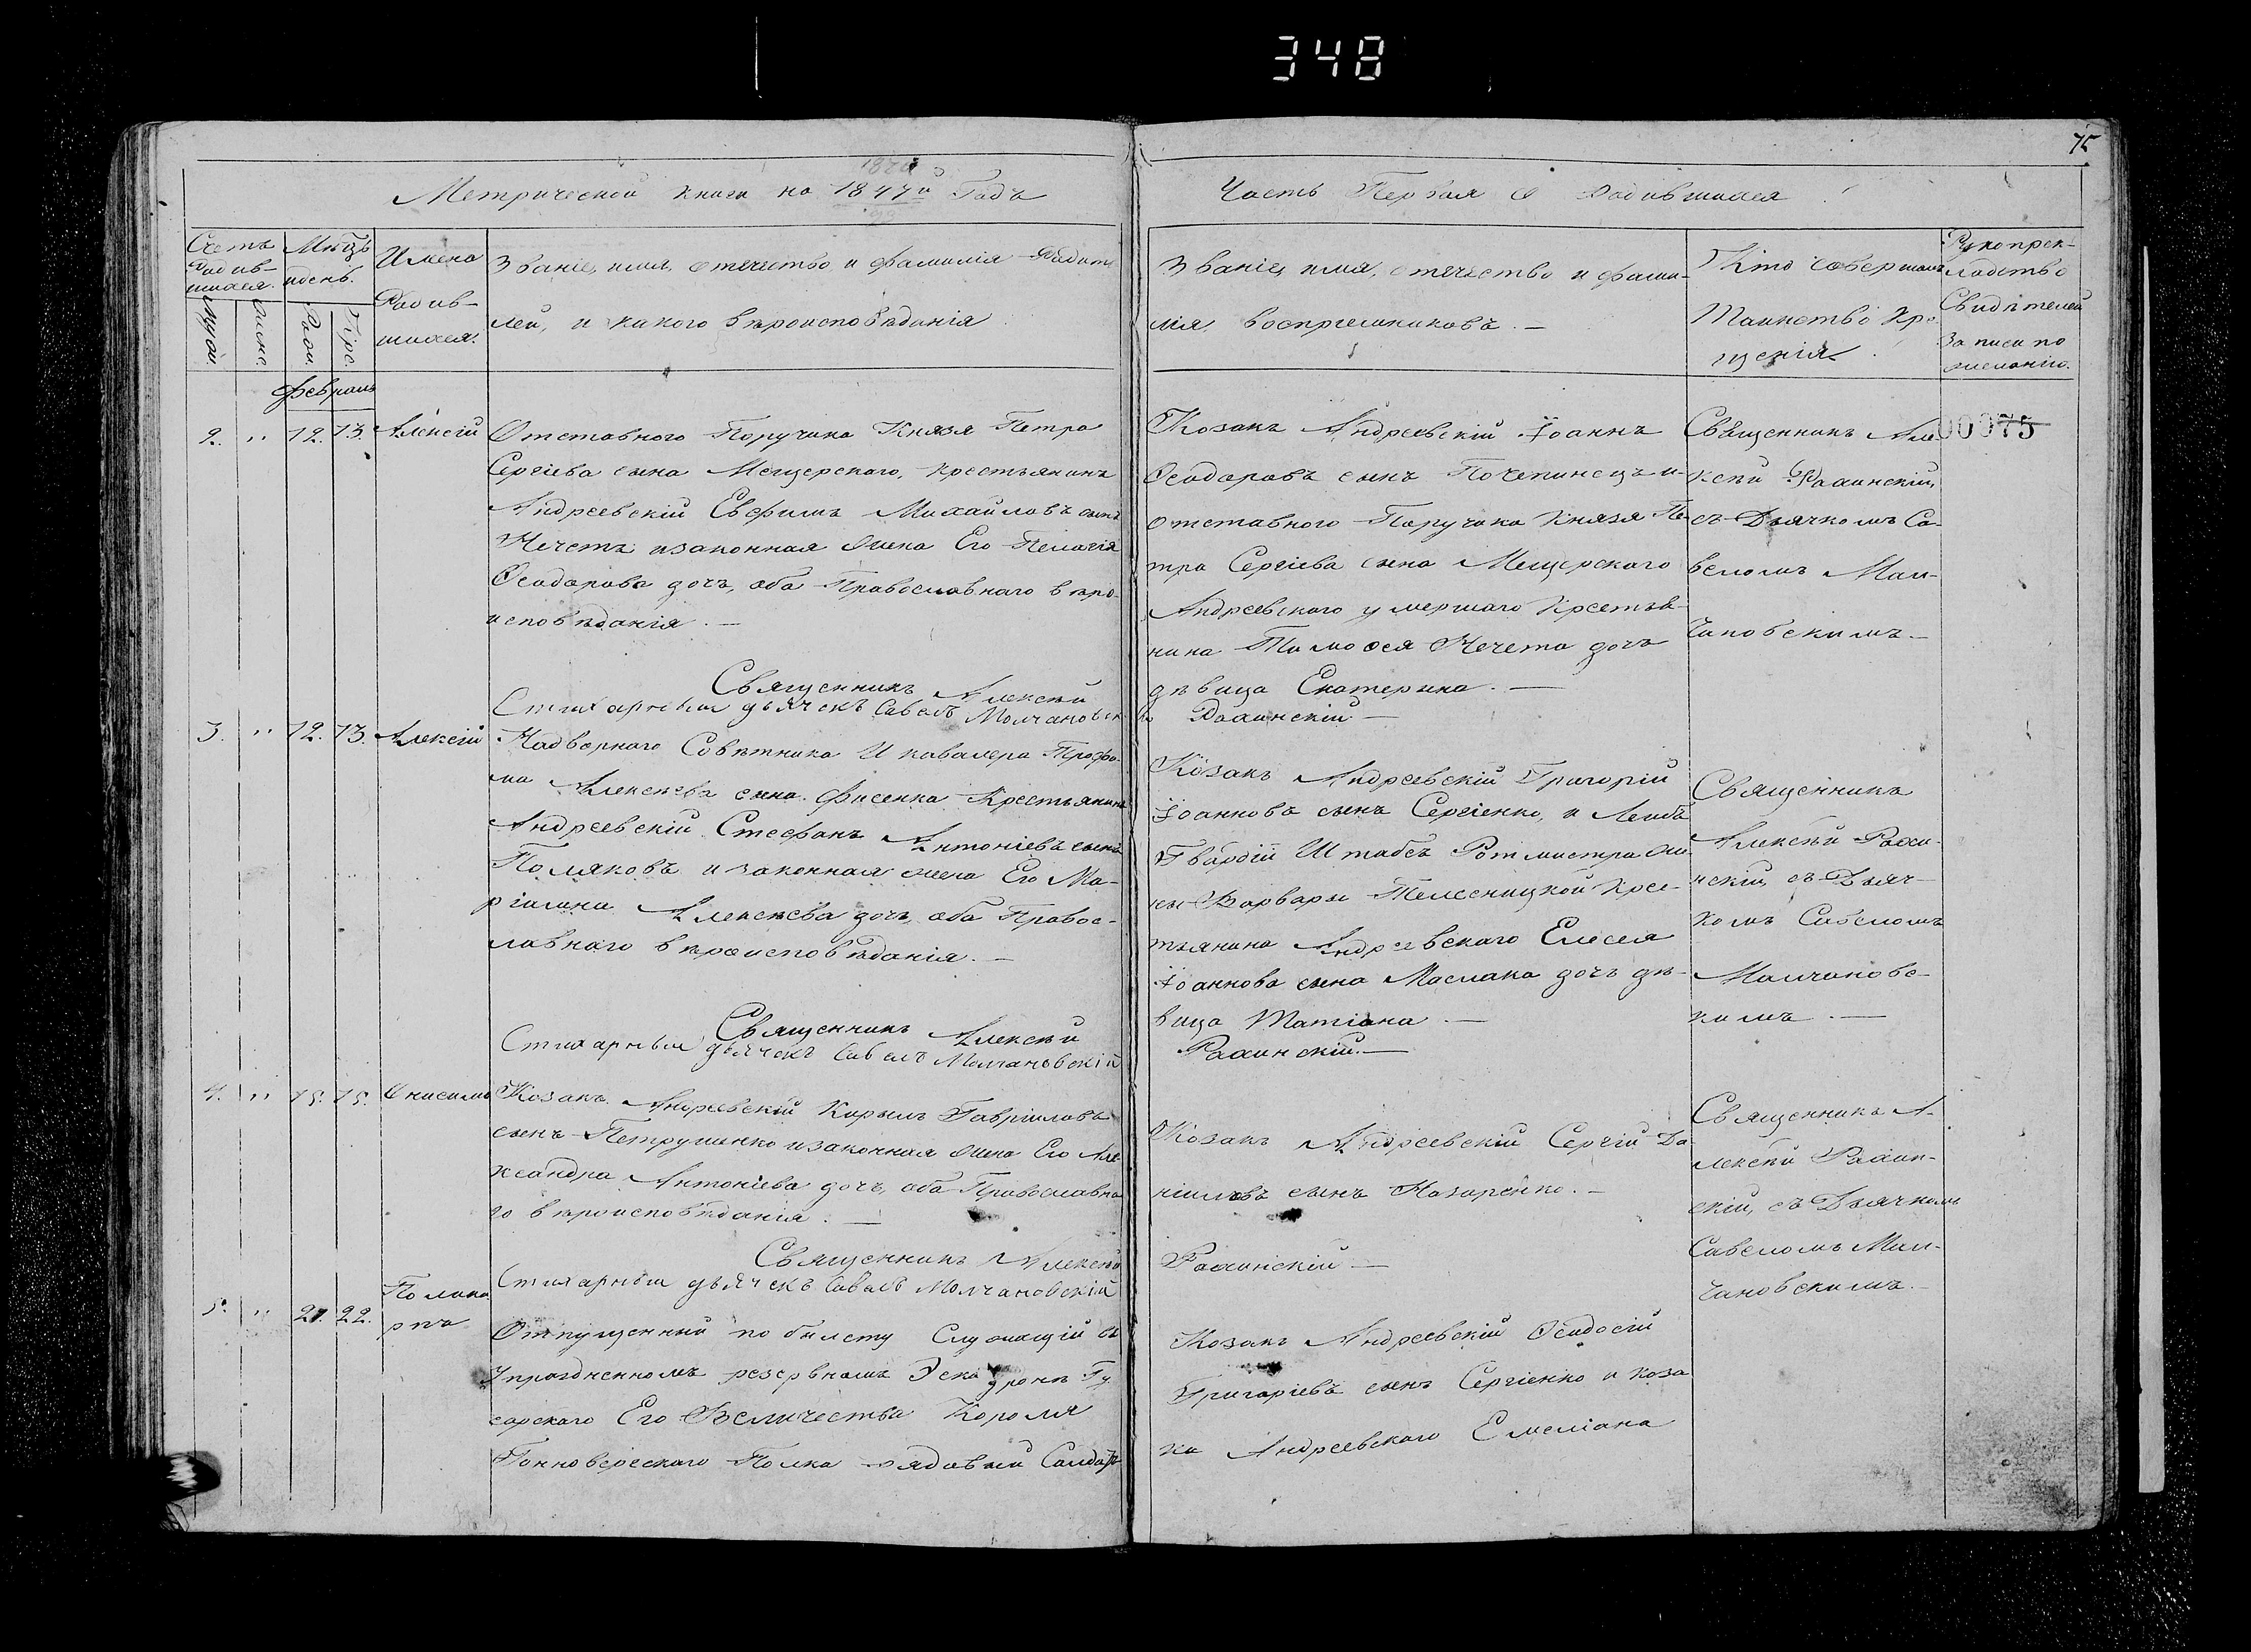 348
75
Метрической книги на 1847й Годъ
Часть Первая О Родившихся
Счетъ Родив-шихся.
Мѣсцъ иденъ.
Имена Родив-шихся.
Званіе, имя, отечество, и фамилія Родите
лей, и какого вѣроисповѣданія.
Муж.
Женс.
Рож.
Кре.
Званіе, имя, отечество и фами-
лія воспріемниковъ. —
Кто совершалъ
Таинство Кре
щенія.
Рукоприк-
ладство
Свидѣтелей
записи по
желанію.
Февраль
2. " 12. 13. Алексѣй
Отставного Поручика Князя Петра
Сергіева сына Мещерского, крестьянинъ
Андреевскій Евфимъ Михайловъ сынъ
Нечетъ изаконная жена Его Пелагія
Ѳеодорова дочь, оба Православнаго вѣро-
исповѣданія. —
Священникъ Алексѣй
Стихарный дьячекъ Савелъ Молчановск
Козакъ Андреевскій Іоаннъ
Ѳеодоровъ сынъ Почепинецъ и
отставного Поручика Князя Пе-
тра Сергіева сына Мещерского
Андреевского умершаго Крестья-
нина Тимоѳея Нечета дочь
дѣвица Екатерина. —
Рахинскій —
Священникъ Але
ксѣй Рахинскій,
съ Дьячкомъ Са-
веломъ Мол-
чановскимъ. —
00075
3. " 12. 13. Алексій
Надворнаго Совѣтника И кавалера Трофи-
ма Алексѣева сына Фисенка Крестьянинъ
Андреевскій Стефанъ Антоніевъ сынъ
Поляковъ изаконная жена Его Ма-
ріамна Алексѣева дочь, оба Правос-
лавнаго вѣроисповѣданія. —
Священникъ Алексѣй
Стихарный дьячекъ Савелъ Молчановскій
Козакъ Андреевскій Григорій
Іоанновъ сынъ Сергіенко, и Лейбъ
Гвардіи Штабсъ Ротмистра же-
ны Варвары Крес-
тьянина Андреевского Елесея
Іоаннова сына Маслака дочь дѣ-
вица Татіана —
Рахинскій. —
Священникъ
Алексѣй Рахи-
нскій, съ Дьяч-
комъ Савеломъ
Молчановс-
кимъ. —
4. " 15. 15. Онисимъ
Козакъ Андреевскій Кирылъ Гавріиловъ
сынъ Петрушенко изаконная жена Его Але-
ксандра Антоніева дочь, оба Православна
го вѣроисповѣданія. —
Священникъ Алексѣй
Стихарный дьячекъ Савелъ Молчановскій
Козакъ Андреевскій Сергій Да
ніиловъ сынъ Назаренко. —
Рахинскій —
Священникъ А-
лексѣй Рахин-
скій, съ Дьячкомъ
Савеломъ Мол-
чановскимъ. —
5. " 21. 22. Полика
рпъ
Отпущенный по билету Служащій въ
Упраздненномъ резервномъ Эскадронѣ Гу
сарского Его Величества Короля
Ганноверского Полка рядовый Солдатъ
Козакъ Андреевскій Ѳеодосій
Григоріевъ сынъ Сергіенко и коза
ка Андреевского Емеліана